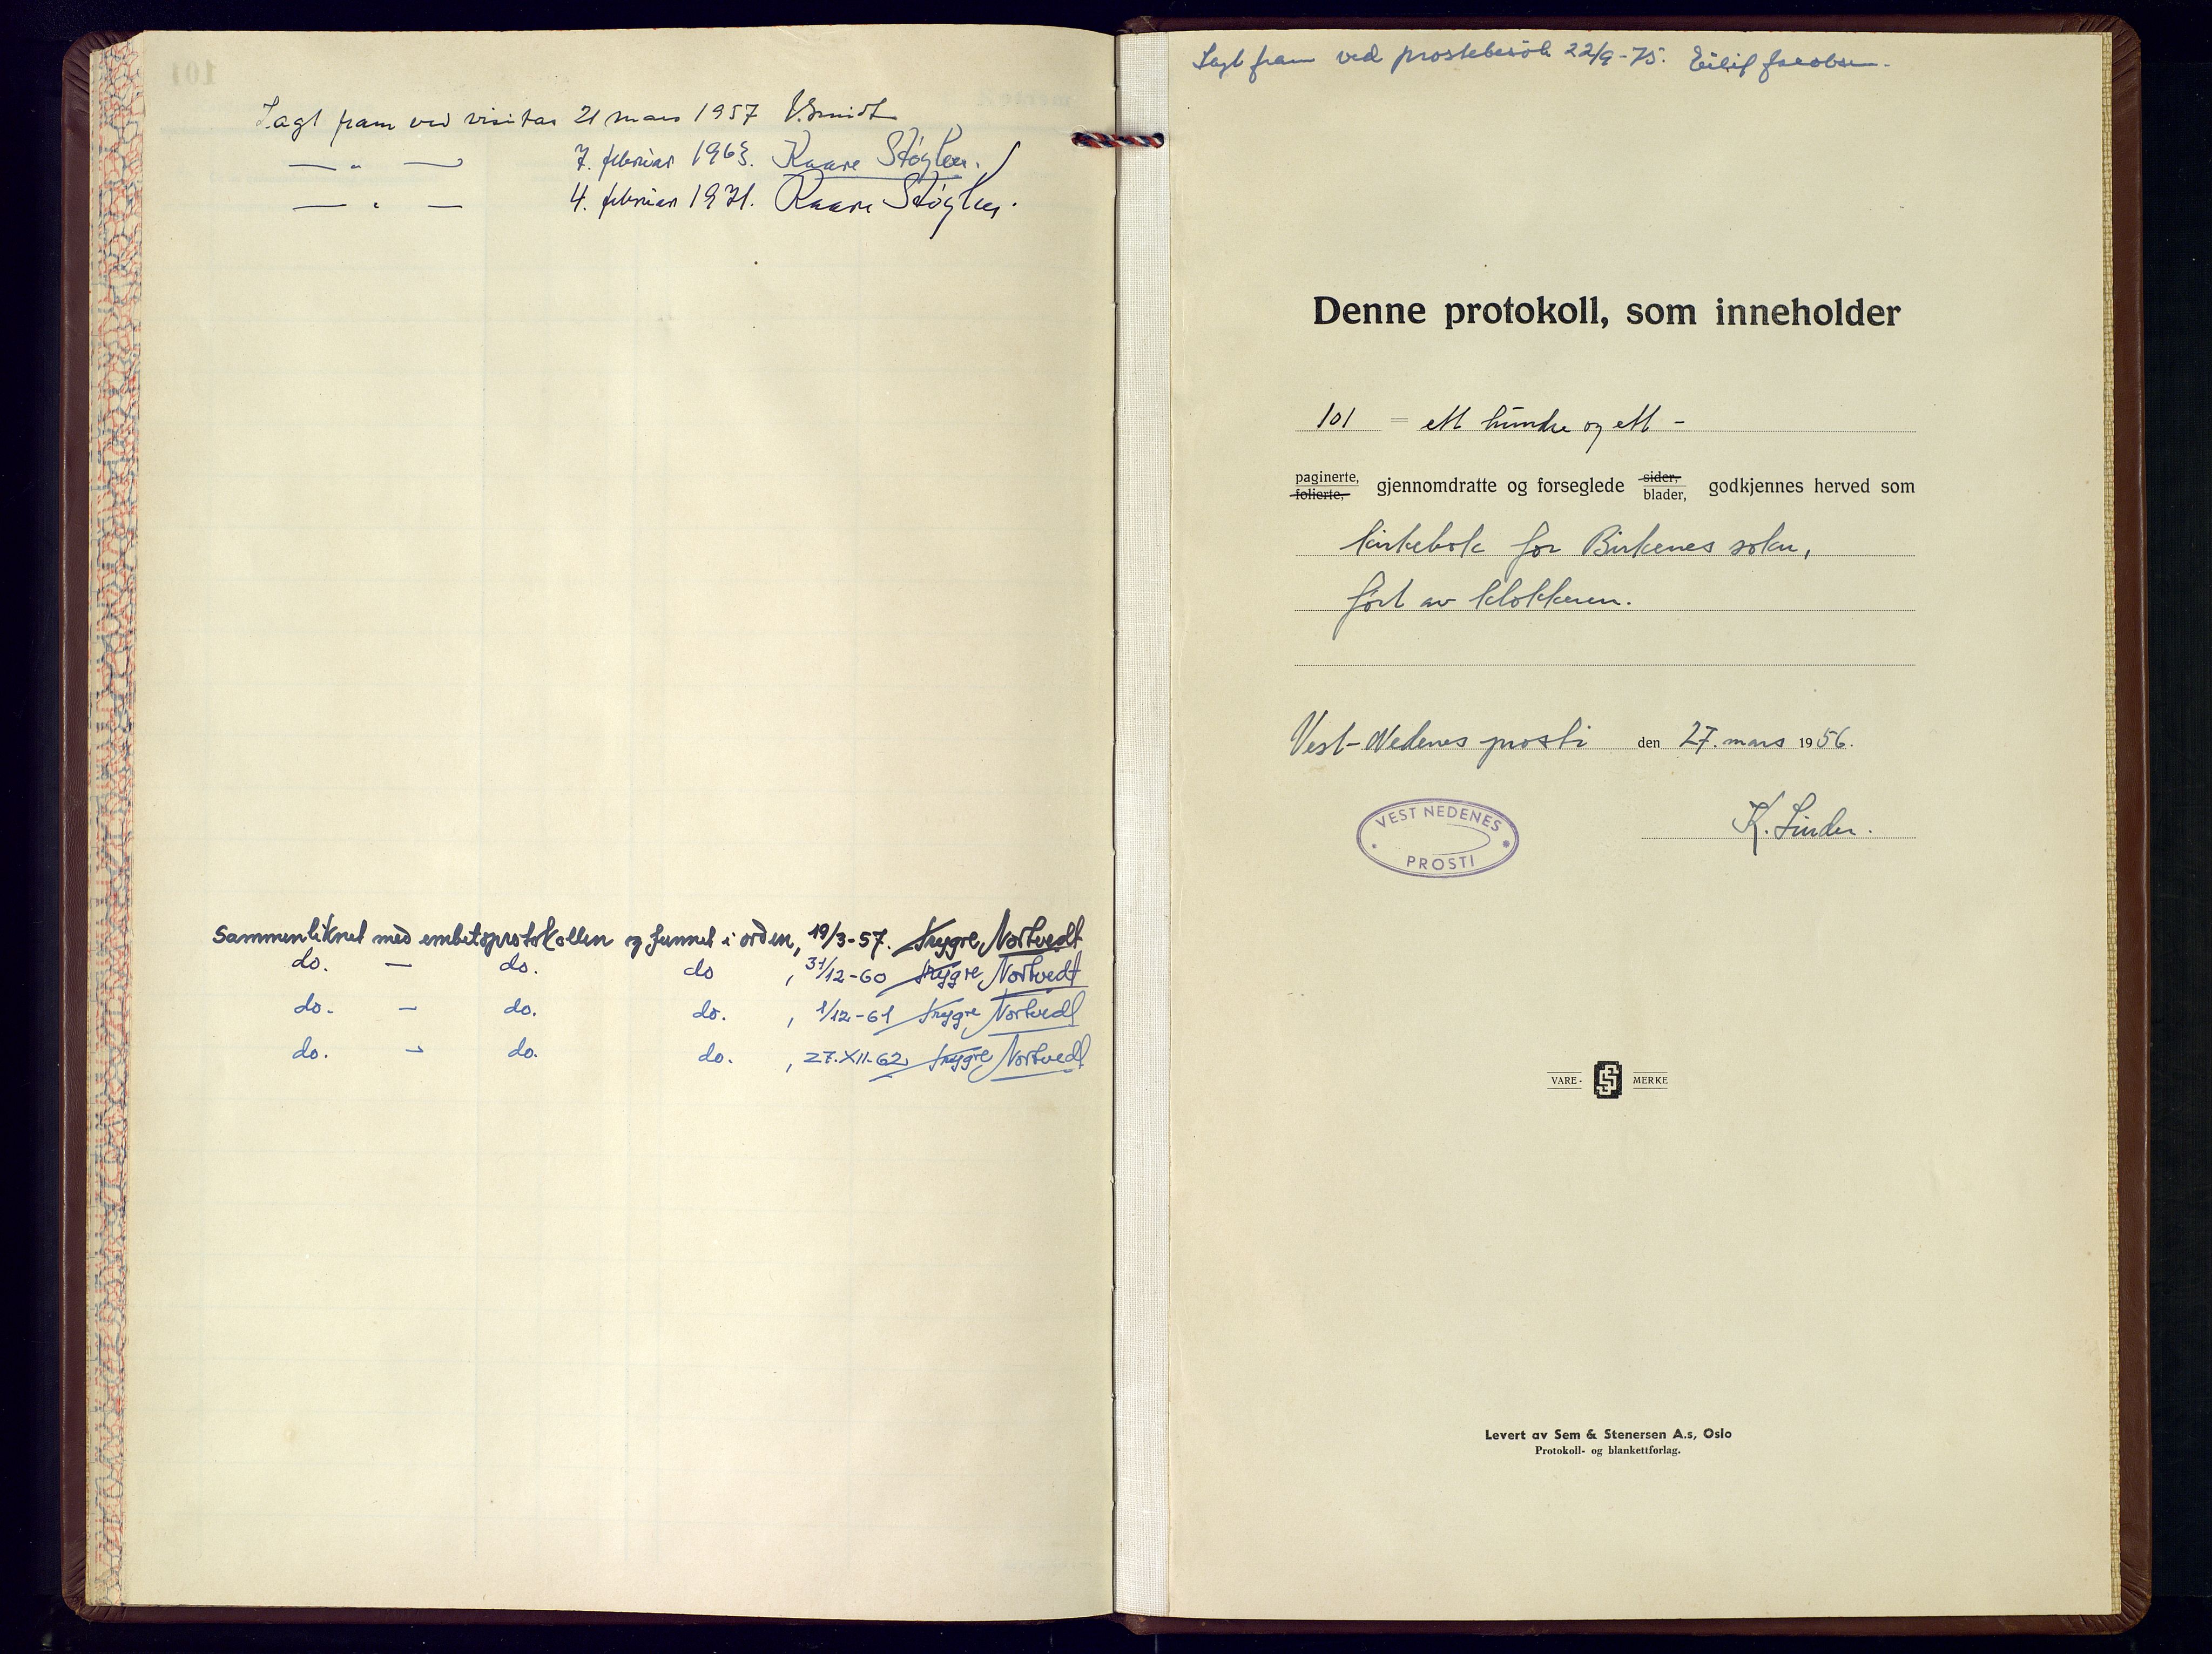 Lagt fram ved visitas 21 mars 1957 J. Smidt
— " — 7. februar 1963. Kaare Støylen.
— " — 4. februar 1971. Kaare Støylen.
Sammenliknet med embetsprotokollen og funnet i orden, 19/3-57. Trygve Nortvedt
do. — do. do , 31/12-60 Trygve Nortvedt
do. — do. do. , 1/12-61 Trygve Nortvedt
do. — do. do. , 27.XII-62 Trygve Nortvedt
Lagt fram ved prostebesök 22/9-75. Eilif Jacobsen.
Denne protokoll, som inneholder
101 = ett hundre og ett -
paginerte, folierte, gjennomdratte og forseglede sider, blader, godkjennes herved som
kirkebok for Birkenes sokn,
ført av klokkeren.
Vest-Nedenes prosti den 27. mars 1956.
VEST NEDENES
PROSTI
K. Linder.
VARE- SS MERKE
Levert av Sem & Stenersen A.s, Oslo
Protokoll- og blankettforlag.
101